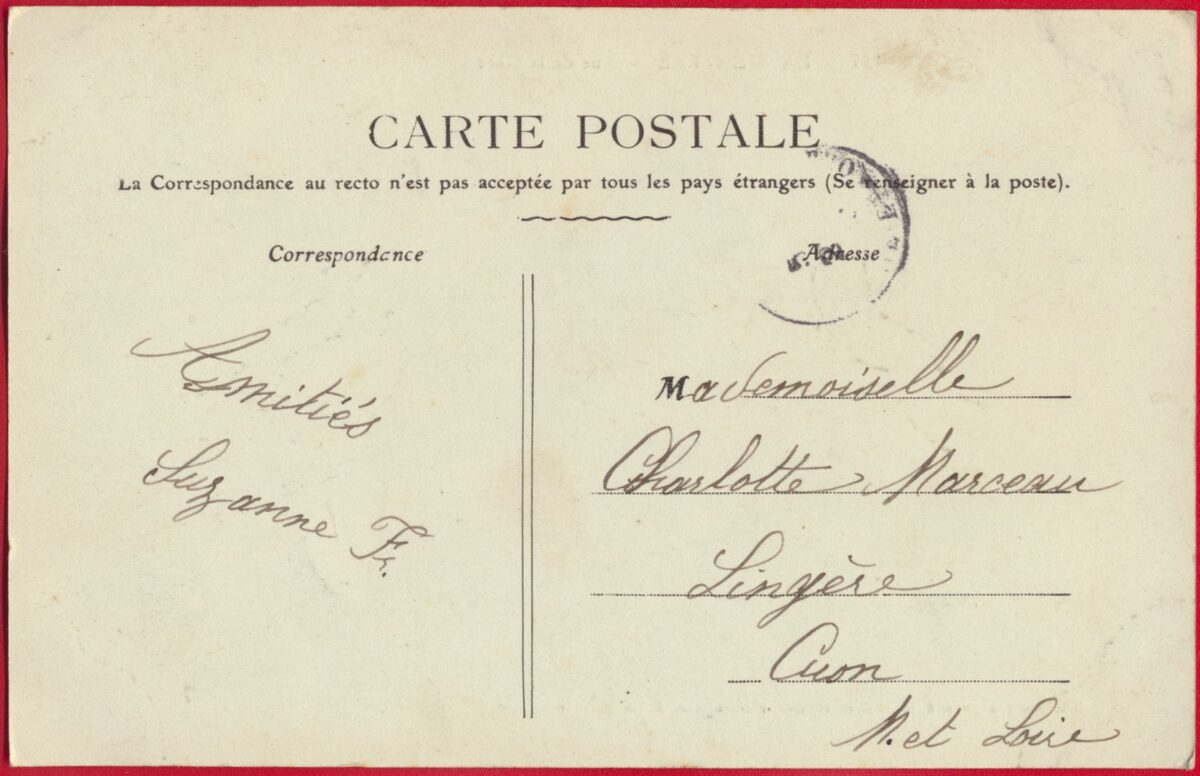 CARTE POSTALE
La Correspondance au recto n'est pas acceptée par tous les pays étrangers (Se renseigner à la poste).
Correspondance
Adresse
Amitiés
Suzanne Fr.
Mademoiselle
Charlotte Marceau
Lingère
Cuon
M. et Loire